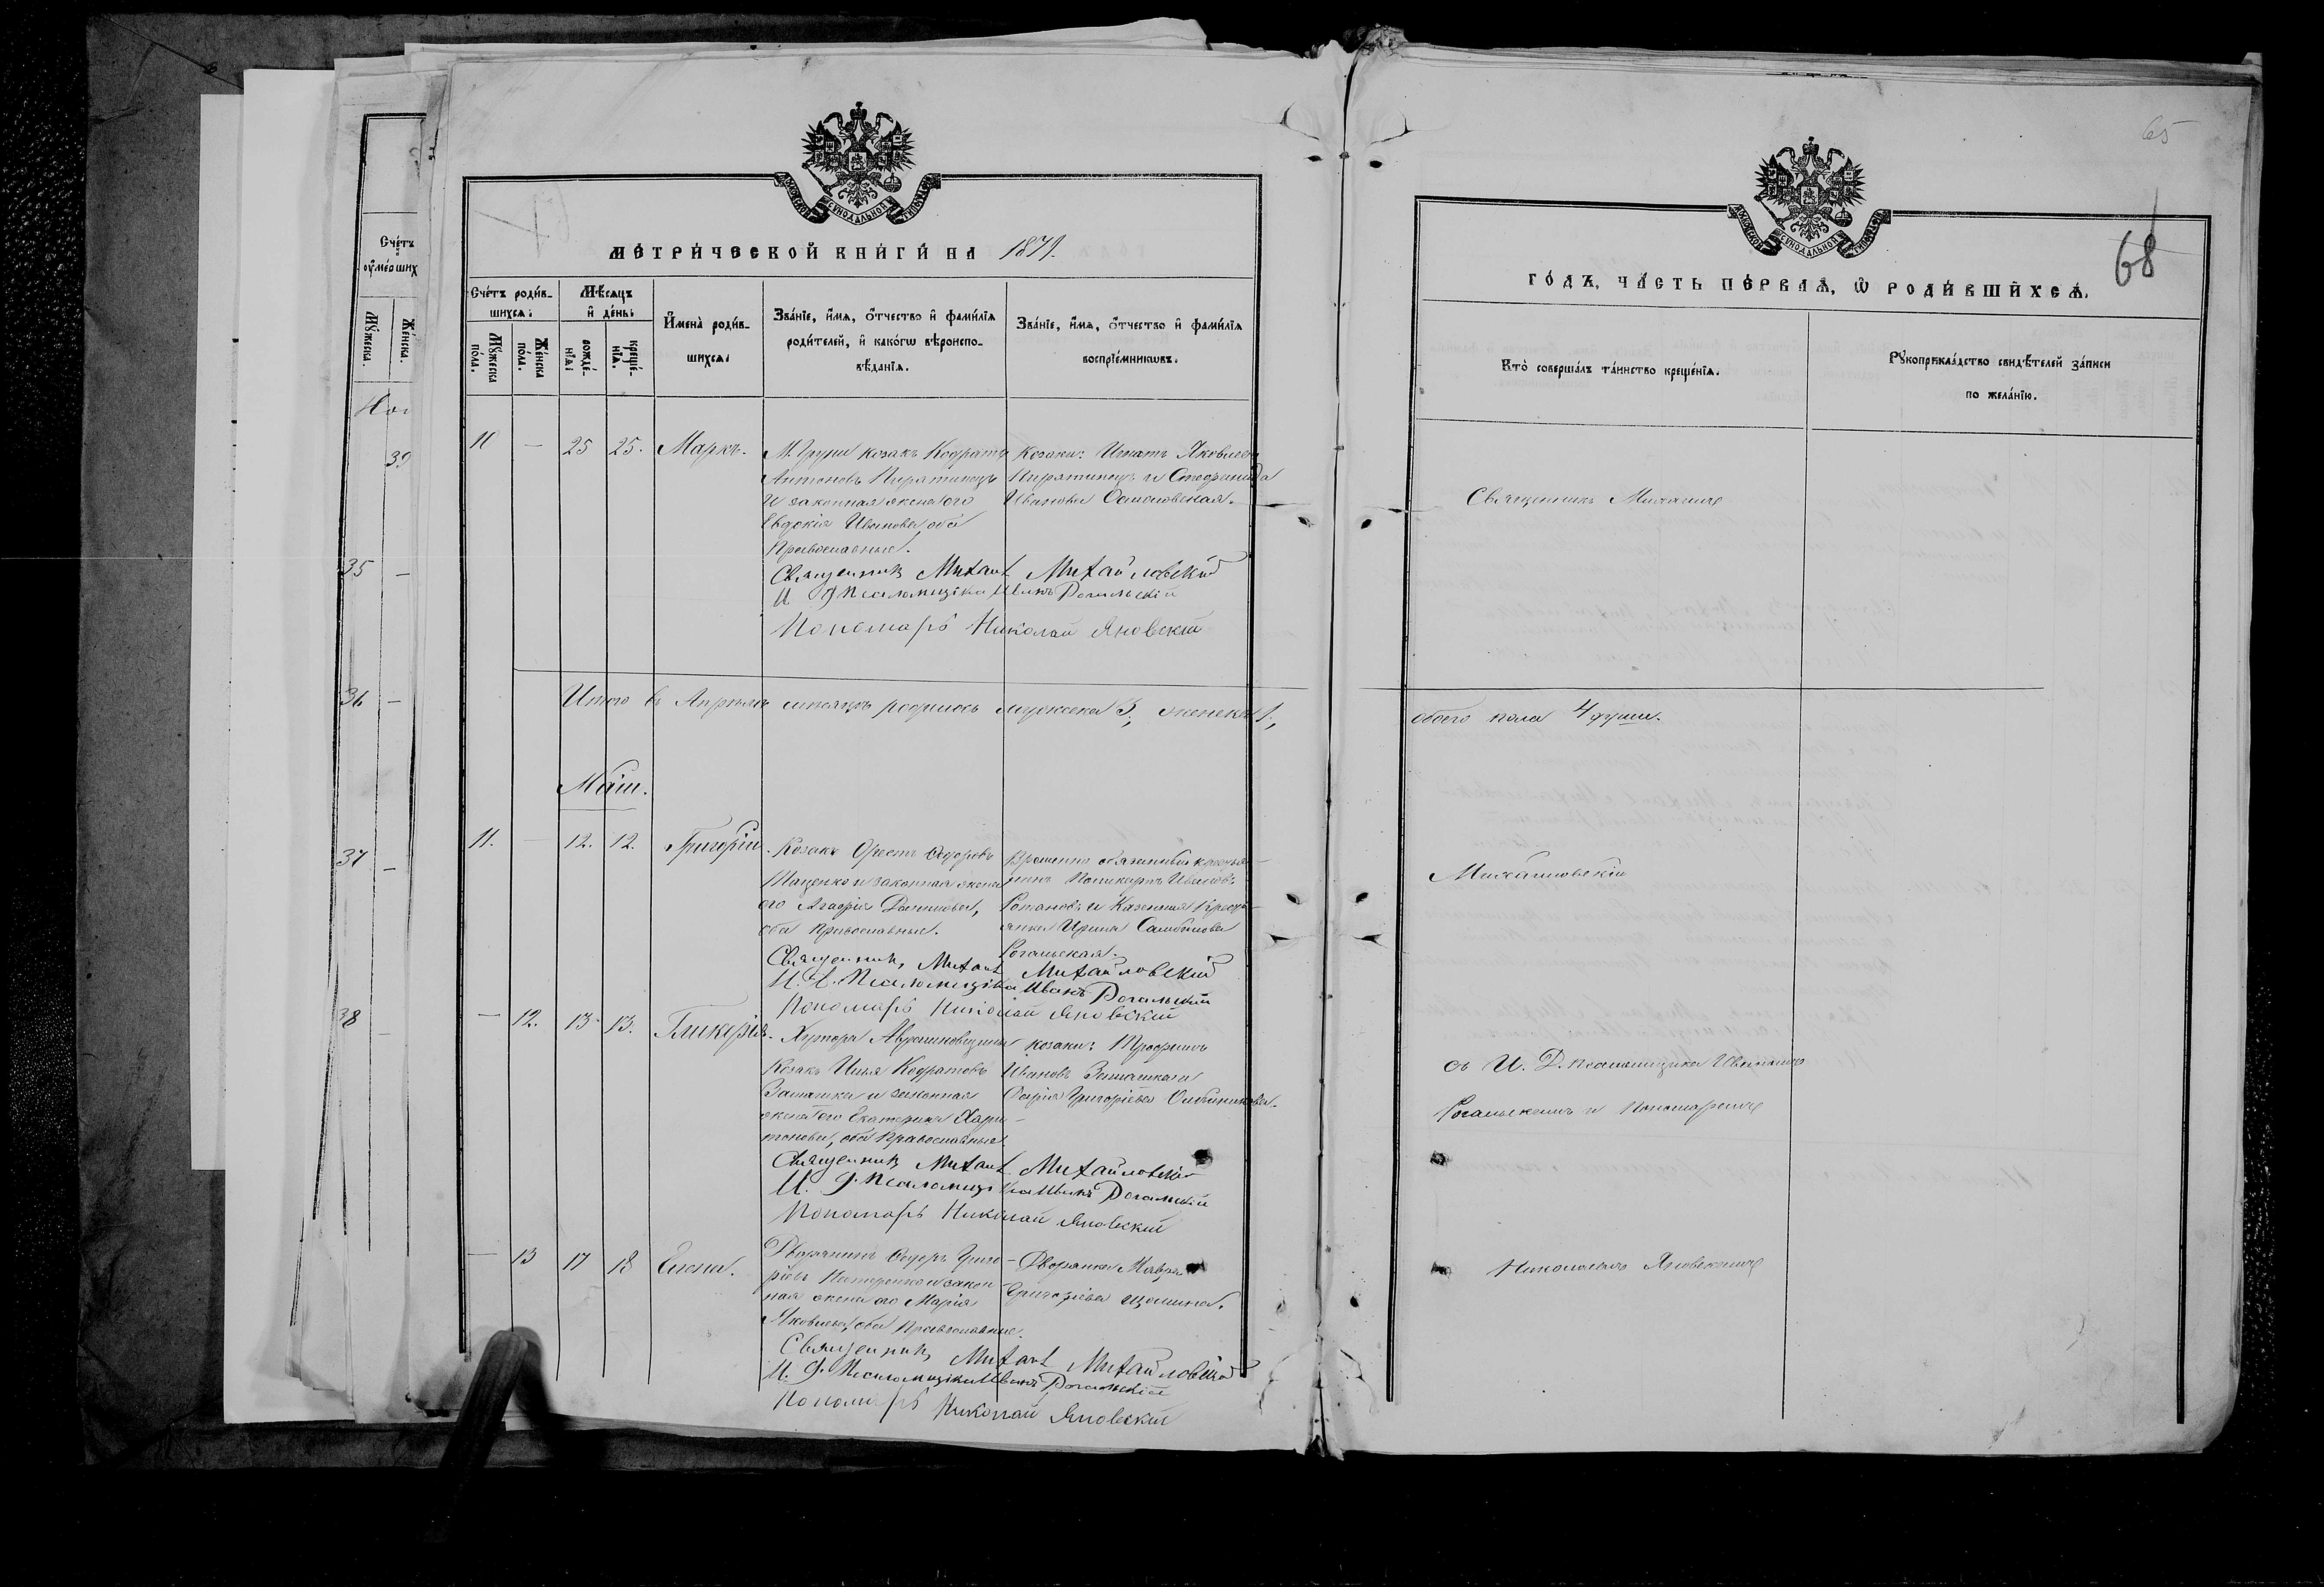 МЕТРИЧЕСКОЙ КНИГИ НА 1871.
Счетъ родив-
шихся:
Мѣсяцъ
и день:
Мужеска
пола.
Женска
пола.
рожде-
нія:
креще-
нія.
Имена родив-
шихся:
Званіе, имя, отчество и фамилія
родителей, и какогѡ вѣроиспо-
вѣданія.
Званіе, имя, отчество и фамилія
воспріемникѡвъ.
10 — 25 25. Маркъ.
М. Груни козакъ Кодратъ
Антоновъ Пирятинецъ
и законная жена его
Евдокія Иванова, оба
Православные.
Козаки: Игнатъ Яковлевъ
Пирятинецъ и Стефанида
Иванова
Священникъ Михаилъ Михайловскій
И. д. Псаломщика Иванъ Рогальскій
Пономарь Николай Яновскій
Итого въ Апрѣлѣ мѣсяцѣ родилось мужеска 3, женска 1,
Маій.
11. — 12. 12. Григорій.
Козакъ Орестъ Ѳедоровъ
Таценко и законная жена
его Агафія Данилова,
оба Православные.
Временно обязанный крестья-
нинъ Поликарпъ Ивановъ
Романовъ и Казенная Кресть-
янка Ирина Самойлова
Рогальская.
Священникъ Михаилъ Михайловскій
И. д. Псаломщика Иванъ Рогальскій
Пономарь Николай Яновскій
— 12. 13. 13. Гликерія.
Хутора
Козакъ Илья Кодратовъ
и законная
жена его Екатерина Хари-
тонова, оба Православные
козаки: Трофимъ
Ивановъ
Софія Григорьева
Священникъ Михаилъ Михайловскій
И. д. Псаломщика Иванъ Рогальскій
Пономарь Николай Яновскій
— 13 17 18 Елена.
Дворянинъ Ѳедоръ Григо-
рьевъ Нестеренко и закон-
ная жена его Марія
Яковлева, оба Православные.
Дворянка Мавра
Григорьева
Священникъ Михаилъ Михайловскій
И. д. Псаломщика Иванъ Рогальскій
Пономарь Николай Яновскій
65
68
ГОДЪ, ЧАСТЬ ПЕРВАЯ, Ѡ РОДИВШИХСЯ.
Кто совершалъ таинство крещенія.
Рукоприкладство свидѣтелей записи
по желанію.
Священникъ Михаилъ
обоего пола 4 души.
Михайловскій
съ И. Д. псаломщика Иваномъ
Рогальскимъ и Пономаремъ
Николаемъ Яновскимъ
Счетъ
умерших
Мужеска.
Женска.
39
35 —
36 —
37 —
38 —